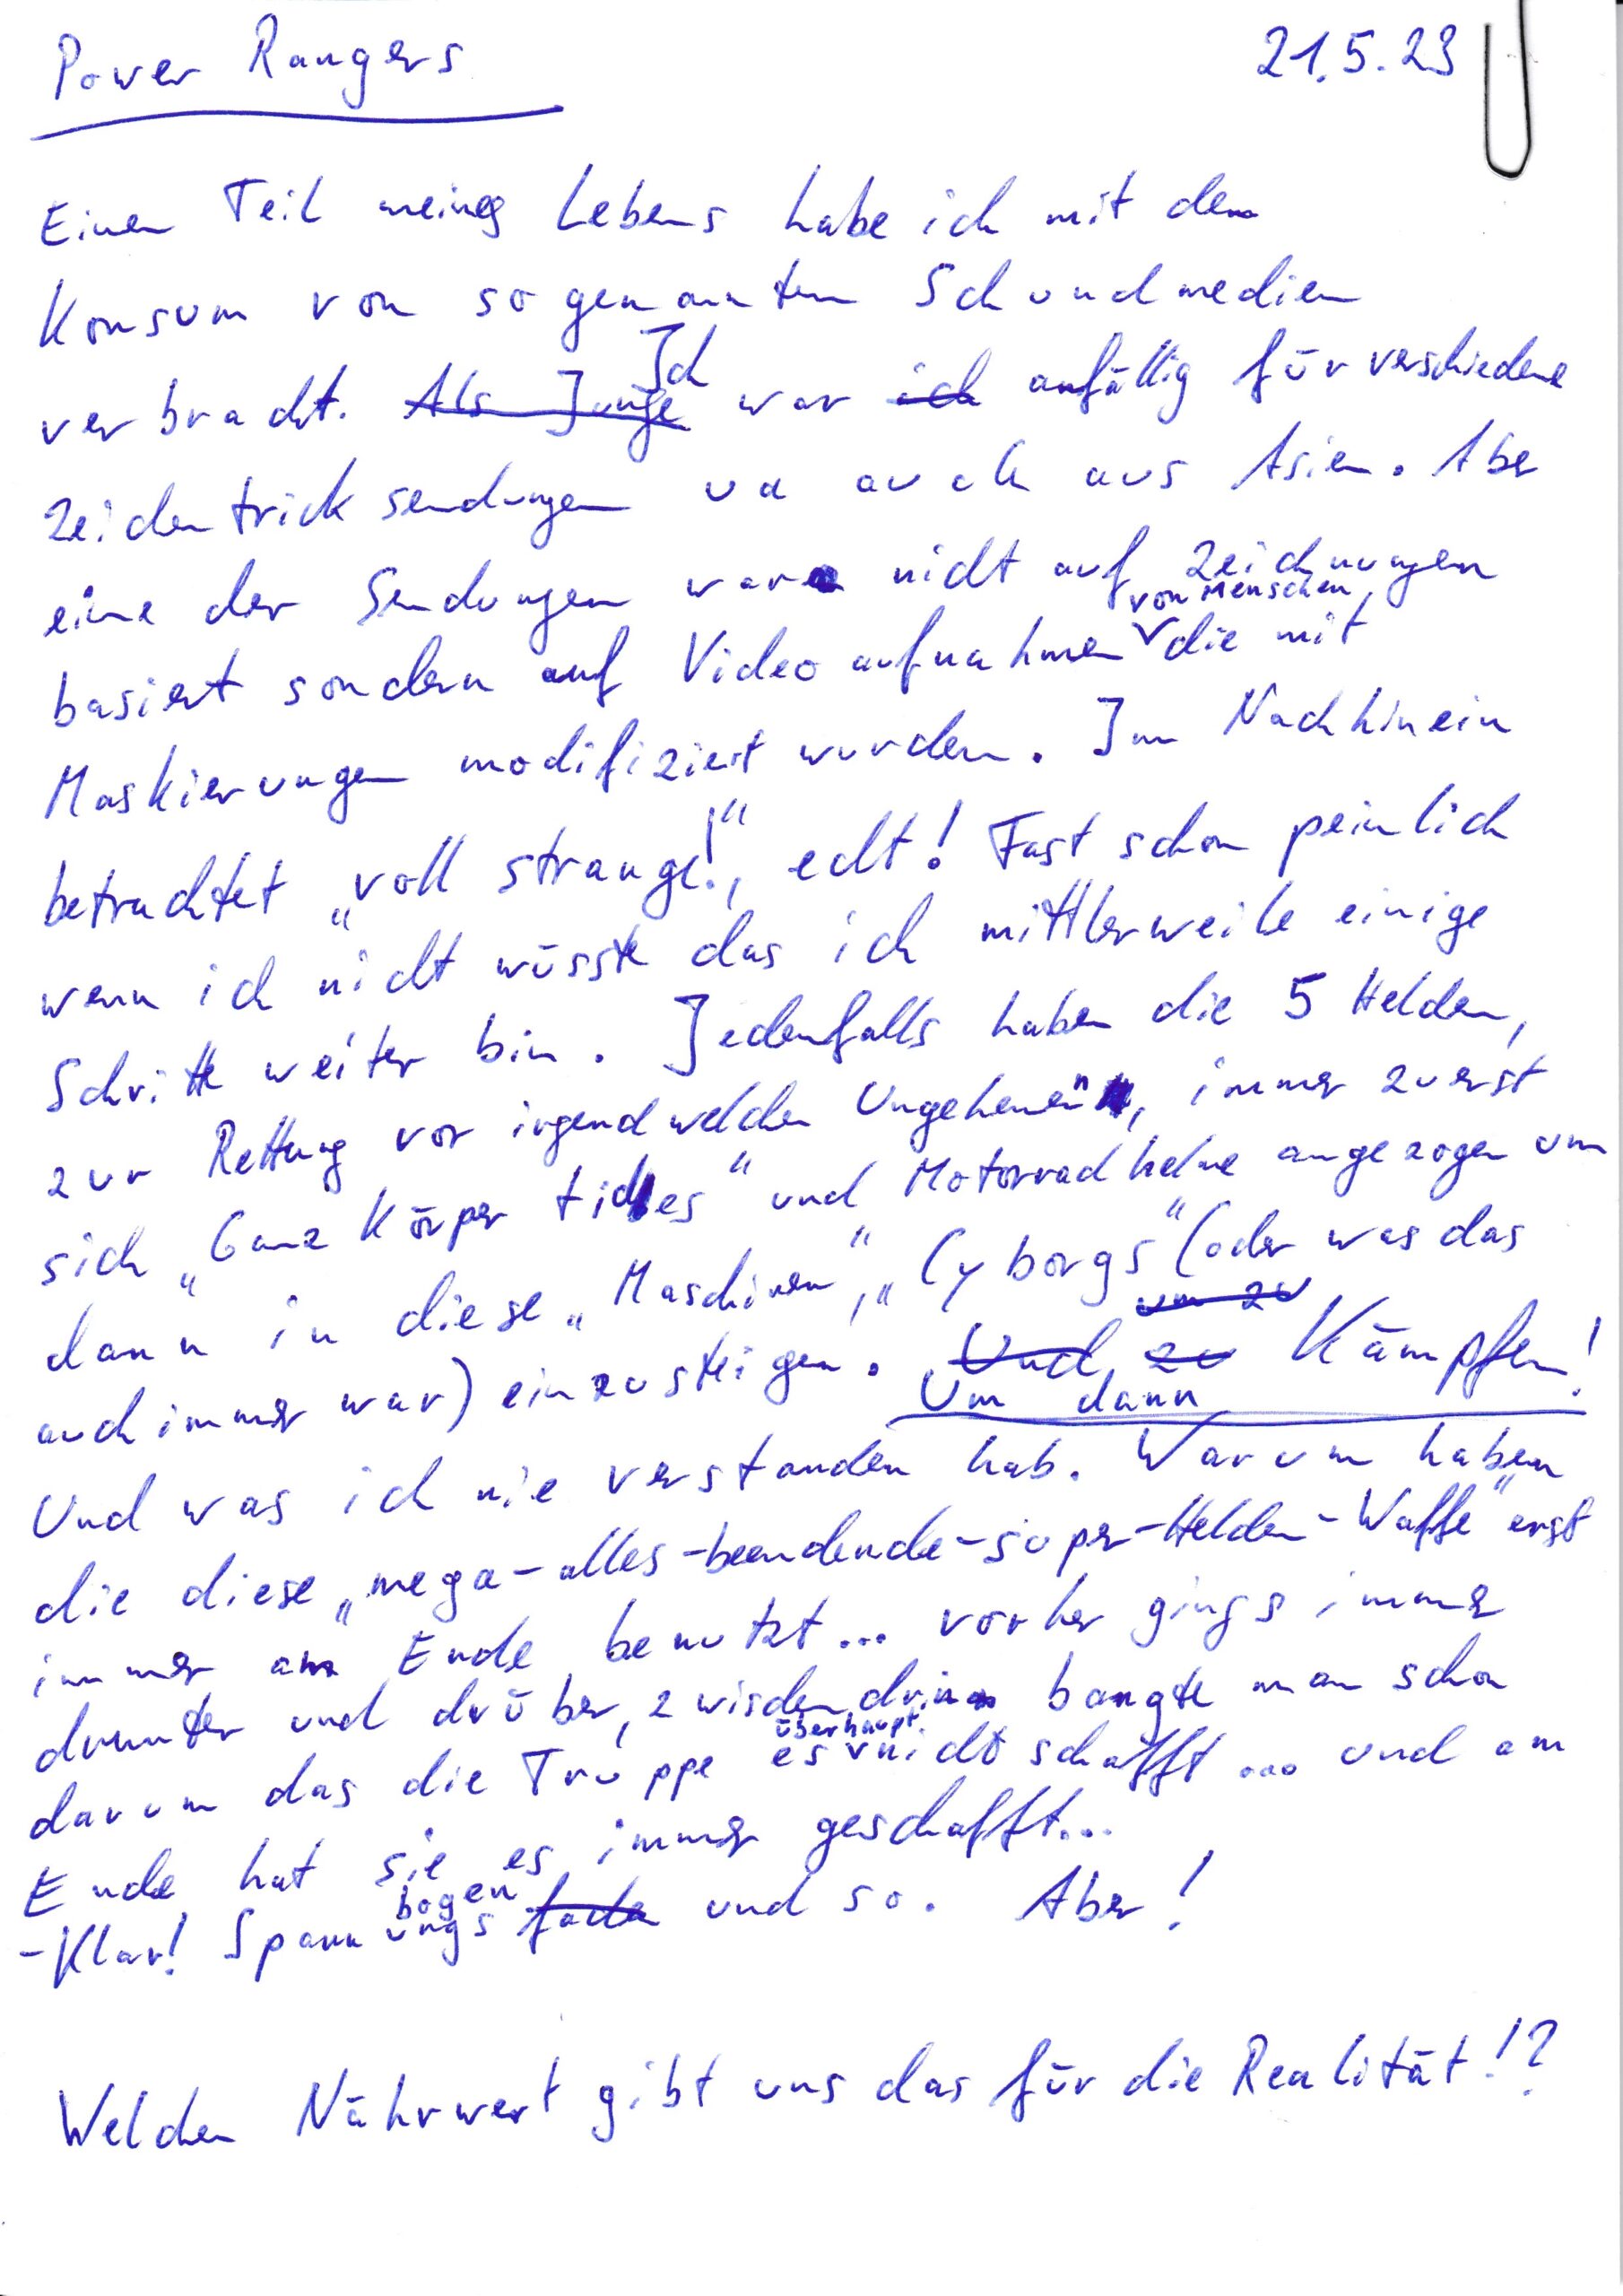 Power Rangers 21.5.23
Einen Teil meines Lebens habe ich mit dem
Konsum von sogenannten Schundmedien
verbracht. Als Junge Ich war ich anfällig für verschiedene
Zeichentricksendungen ua auch aus Asien. Aber
eine der Sendungen war nicht auf Zeichnungen
basiert sondern auf Videoaufnahmen von Menschen, die mit
Maskierungen modifiziert wurden. Im Nachhinein
betrachtet „voll strange!“, echt! Fast schon peinlich
wenn ich nicht wüsste das ich mittlerweile einige
Schritte weiter bin. Jedenfalls haben die 5 Helden,
zur Rettung vor irgendwelchen Ungeheuern, immer zuerst
sich „Ganz Körper tides“ und Motorradhelme angezogen um
dann in diese „Maschinen“, „Cyborgs“ (oder was das
auch immer war) einzusteigen. Und zu um zu Um dann Kämpfen!
Und was ich nie verstanden hab. Warum haben
die diese „mega-alles-beendende-super-Helden-Waffe“ erst
immer am Ende benutzt... vorher gings immer
drunter und drüber, zwischendrin bangte man schon
darum das die Truppe es überhaupt nicht schafft ... und am
Ende hat sie es immer geschafft...
-Klar! Spannungsbogen und so. Aber!
Welchen Nährwert gibt uns das für die Realität!?